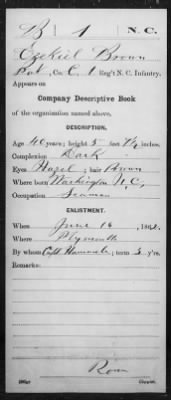 B 1 N.C.
Ezekiel Brown
Pvt., Co. C, 1 Reg't N. C. Infantry.
Appears on
Company Descriptive Book
of the organization named above.
DESCRIPTION.
Age 40 years; height 5 feet 7½ inches.
Complexion Dark
Eyes Hazel; hair Brown
Where born Washington N.C,
Occupation Seaman
ENLISTMENT.
When June 16, 1862.
Where Plymouth
By whom Capt. ; term 3 y'rs.
Remarks:
Copyist.